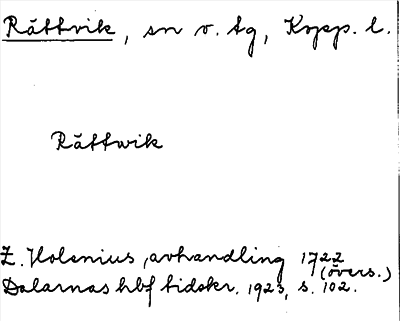 Rättvik, sn o. tg, Kopp. l.
Rättwik
Z. Holenius, avhandling 1722
(övers.)
Dalarnas hbf tidskr. 1923, s. 102.